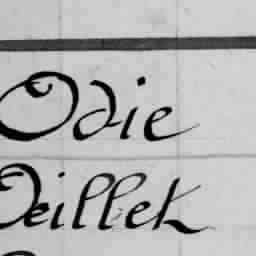 Odie
Deillet